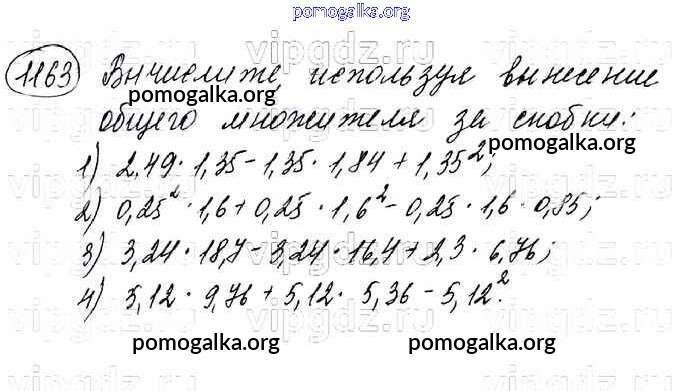 pomogalka.org
vipgdz.ru vipgdz.ru
1163 Вычислите, используя вынесение
pomogalka.org
общего множителя за скобки:
pomogalka.org
1) 2,49 · 1,35 - 1,35 · 1,84 + 1,35²;
vipgdz.ru vipgdz.ru
2) 0,25² · 1,6 + 0,25 · 1,6² - 0,25 · 1,6 · 0,85;
3) 3,24 · 18,7 - 3,24 · 16,4 + 2,3 · 6,76;
vipgdz.ru vipgdz.ru
4) 5,12 · 9,76 + 5,12 · 5,36 - 5,12².
vipgdz.ru vipgdz.ru
pomogalka.org pomogalka.org